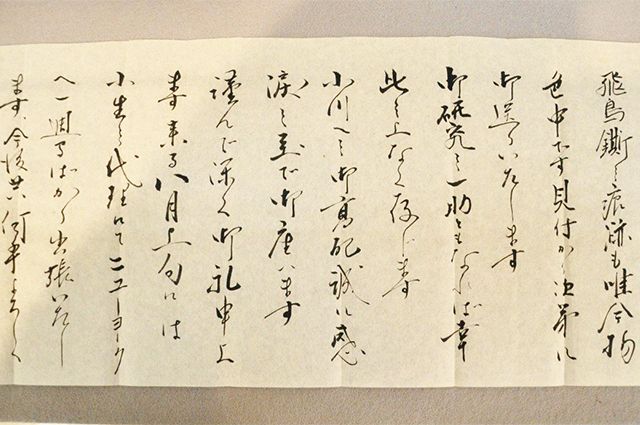 飛鳥の痕跡も唯今物
色中です見付かり次第に
御送りいたします
御研究之一助ともなれば幸
此上なく存じます
小川へも御高配誠に感
涙之至で御座います
謹んで深く御礼申上
ます来る八月上旬には
小生の代理にてニューヨーク
へ一週間ばかり出張いたし
ます、今後共何卒よろしく